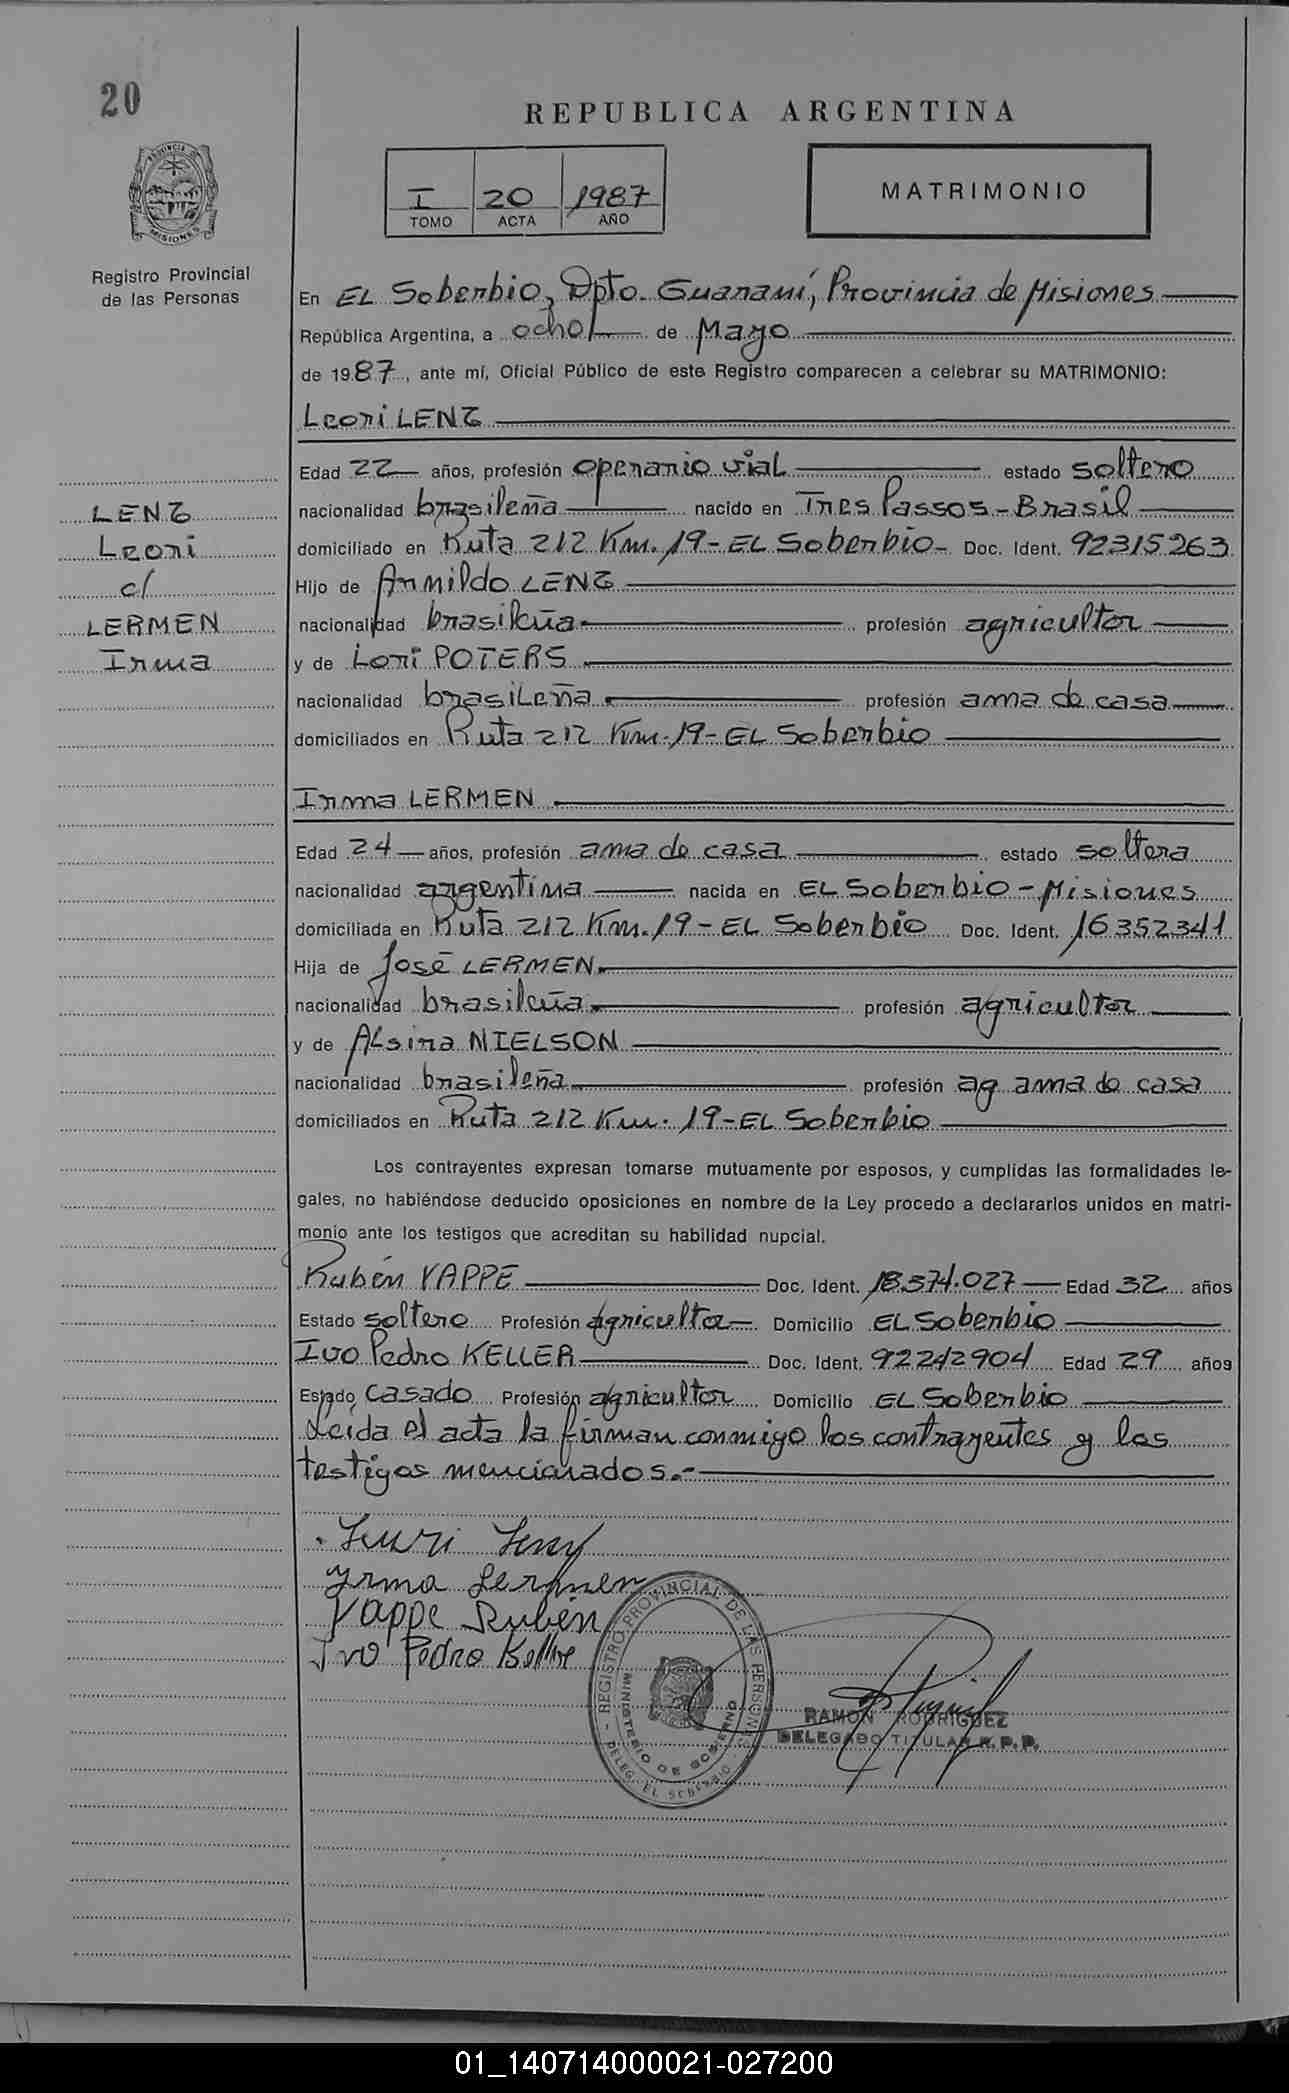 20
REPUBLICA ARGENTINA
PROVINCIA DE
MISIONES
I 20 1987
TOMO ACTA AÑO
MATRIMONIO
Registro Provincial
de las Personas
En EL Soberbio, Dpto. Guaraní, Provincia de Misiones
República Argentina, a ocho de Mayo
de 1987, ante mí, Oficial Público de este Registro comparecen a celebrar su MATRIMONIO:
Leori LENZ
Edad 22 años, profesión operario vial estado soltero
nacionalidad brasileña nacido en Tres Passos - Brasil
domiciliado en Ruta 212 Km. 19 - EL Soberbio - Doc. Ident. 92315263
Hijo de Arnildo LENZ
nacionalidad brasileña profesión agricultor
y de Lori POTERS
nacionalidad brasileña profesión ama de casa
domiciliados en Ruta 212 Km. 19 - EL Soberbio
LENZ
Leori
c/
LERMEN
Irma
Irma LERMEN
Edad 24 años, profesión ama de casa estado soltera
nacionalidad argentina nacida en EL Soberbio - Misiones
domiciliada en Ruta 212 Km. 19 - EL Soberbio Doc. Ident. 16352341
Hija de José LERMEN
nacionalidad brasileña profesión agricultor
y de ALsira NIELSON
nacionalidad brasileña profesión ag ama de casa
domiciliados en Ruta 212 Km. 19 - EL Soberbio
Los contrayentes expresan tomarse mutuamente por esposos, y cumplidas las formalidades le-
gales, no habiéndose deducido oposiciones en nombre de la Ley procedo a declararlos unidos en matri-
monio ante los testigos que acreditan su habilidad nupcial.
Rubén VAPPE Doc. Ident. 18.374.027 Edad 32 años
Estado soltero Profesión agricultor Domicilio EL Soberbio
Ivo Pedro KELLER Doc. Ident. 92242904 Edad 29 años
Estado casado Profesión agricultor Domicilio EL Soberbio
Leída el acta la firman conmigo los contrayentes y los
testigos mencionados.-
Irma Lermen
Vappe Rubén
Ivo Pedro
REGISTRO PROVINCIAL DE LAS PERSONAS
MINISTERIO DE GOBIERNO
DELEG. EL SOBERBIO
RAMON RODRIGUEZ
DELEGADO TITULAR R.P.P.
01_140714000021-027200